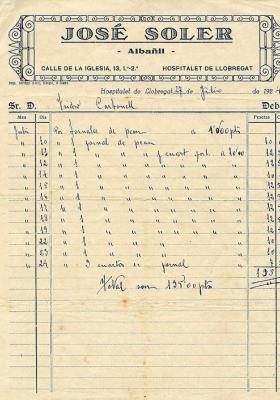 JOSÉ SOLER
- Albañil -
CALLE DE LA IGLESIA, 13, 1.º-2.ª HOSPITALET DE LLOBREGAT
Hospitalet de Llobregat 27 de Julio de 192
Sr. D. André Carbonell Deb
Mes Día Pesetas C
Julio Por jornales de peon a 12'00 pts
" 10 " 1 jornal de peon 12
" 11 " 1 " " " 12
" 12 " 1 " " " 12
" 14 " 1 " " " 12
" 15 " 1 " " " 12
" 16 " 1 " " " 12
" 17 " 1 " " " 12
" 18 " 1 " " " 12
" 19 " 1 " " " 12
" 22 " 1 " " " 12
" 23 " 1 " " " 12
" 24 " 3 cuartos de jornal
Total son 135'00 pts 135